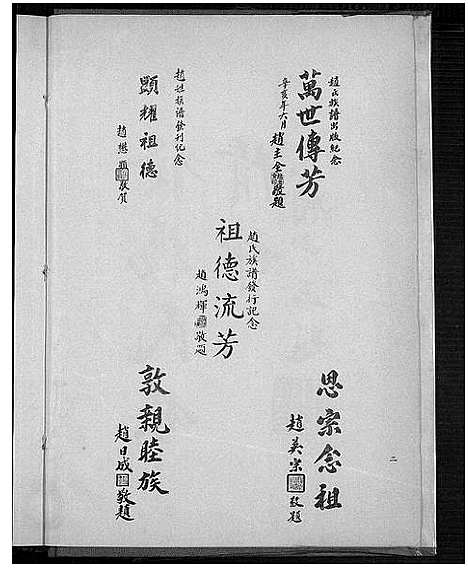 趙氏族譜出版紀念
萬世傳芳
辛亥年六月
趙主全敬題
趙姓族譜發刊紀念
顯耀祖德
趙懋敬賀
趙氏族譜發行記念
祖德流芳
趙鴻輝敬題
思宗念祖
趙美宗敬題
敦親睦族
趙日成敬題
二